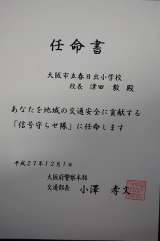 任命書
大阪市立春日出小学校
校長 津田 毅 殿
あなたを地域の交通安全に貢献する
「信号守らせ隊」に任命します
平成27年12月1日
大阪府警察本部
交通部長 小澤 孝文